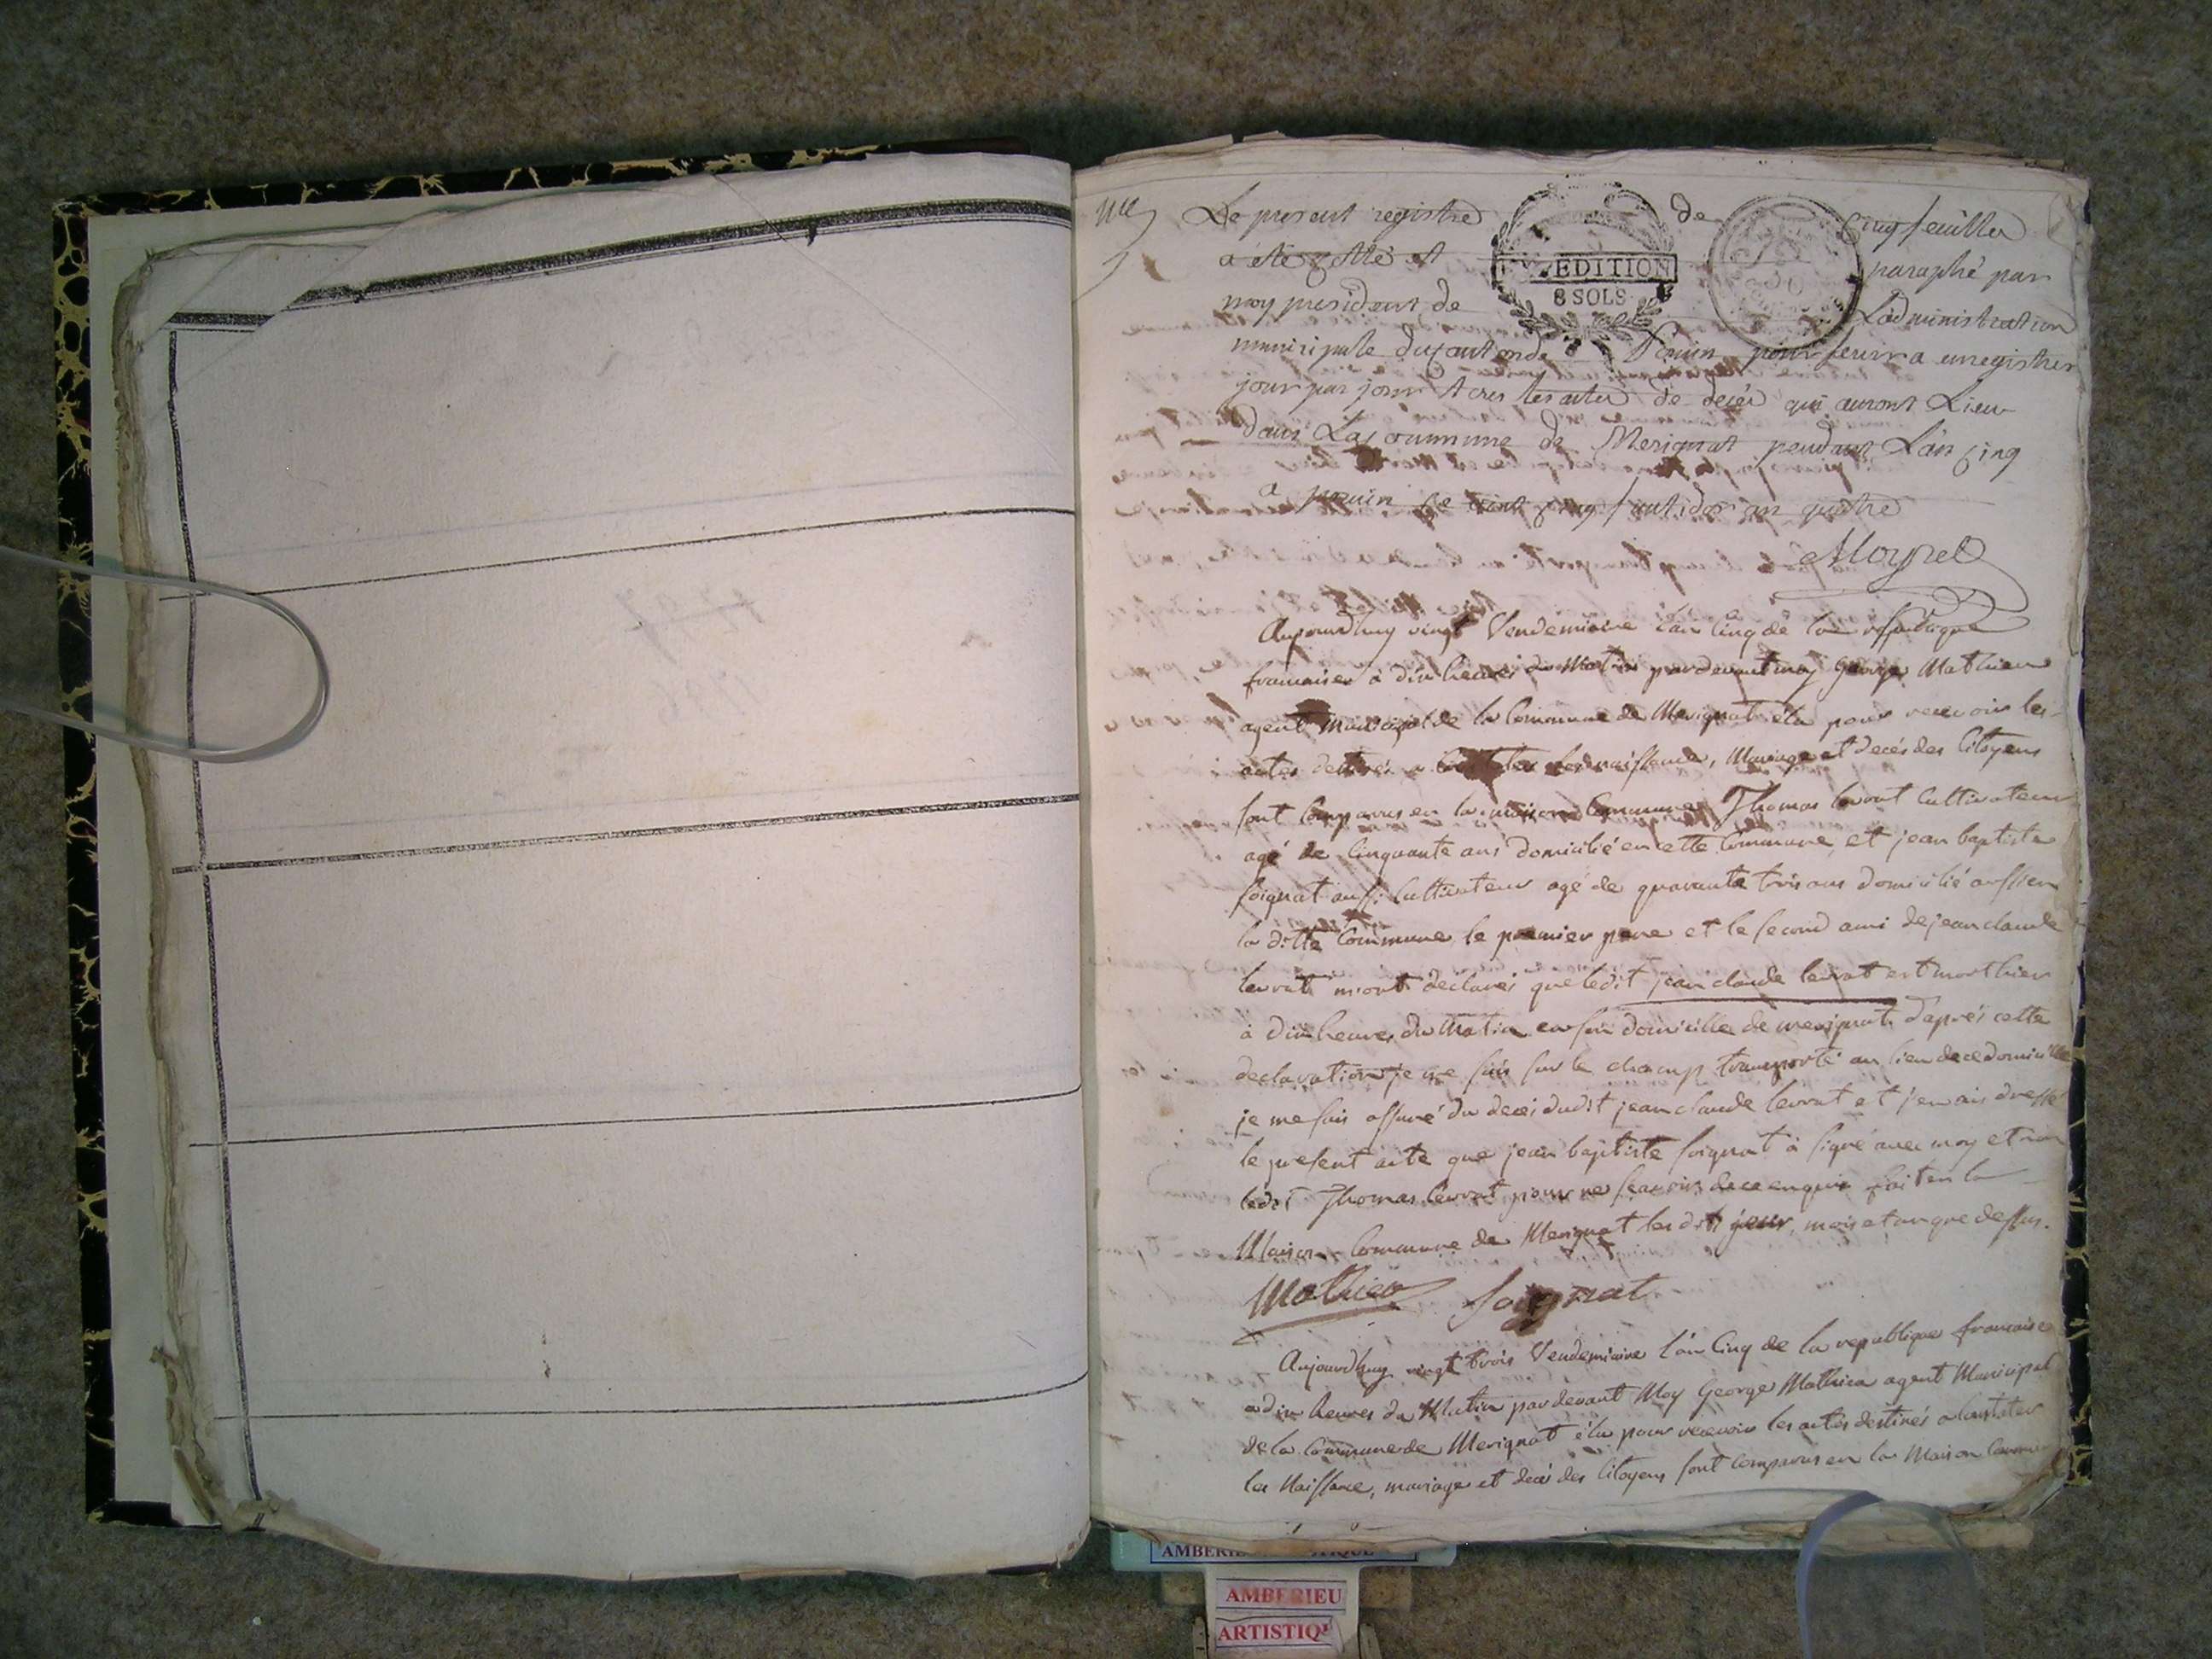 Le present registre de Cinq feuilles
a été cotté et paraphé par
moy president de L'administration
municipale du canton de Poncin pour servir a enregistrer
jour par jour tous les actes de décès qui auront Lieu
dans La commune de Merignat pendant L'an Cinq
a poncin ce vint cinq fructidor an quatre
EDITION
8 SOLS
Moyret
Aujourdhuy vingt Vendemiaire l'an Cinq de la republique
francaise à dix heures du Matin pardevant moy George Mathieu
agent Municipal de la Commune de Merignat élu pour recevoir les
actes destinés a Constater les naissance, Mariage et decés des Citoyens
sont Comparus en la maison Commune Thomas levrat Cultivateur
agé de Cinquante ans domicilié en cette Commune, et jean baptiste
soignat aussi Cultivateur agé de quarante trois ans domicilié aussi en
la ditte Commune le premier pere et le second ami de jean claude
levrat m'ont declarés que ledit jean claude levrat est mort hier
à dix heures du Matin en son domicille de merignat. d'aprés cette
declaration je me suis sur le champ transporté au lieu de ce domicille
je me suis assuré du decés dudit jean claude levrat et j'en ais dressé
le present acte que jean baptiste soignat à signé avec moy et non
ledit Thomas levrat pour ne scavoir de ce enquis fait en la
Maison Commune de Merignat les dits jour, mois et an que dessus.
Mathieu soignat
Aujourdhuy vingt trois Vendemiaire l'an Cinq de la republique francaise
a dix heures du Matin pardevant Moy George Mathieu agent Municipal
de la Commune de Merignat élu pour recevoir les actes destinés a Constater
les Naissance, mariage et decés des Citoyens sont Comparus en la Maison Commune
AMBERIEU
ARTISTIQ